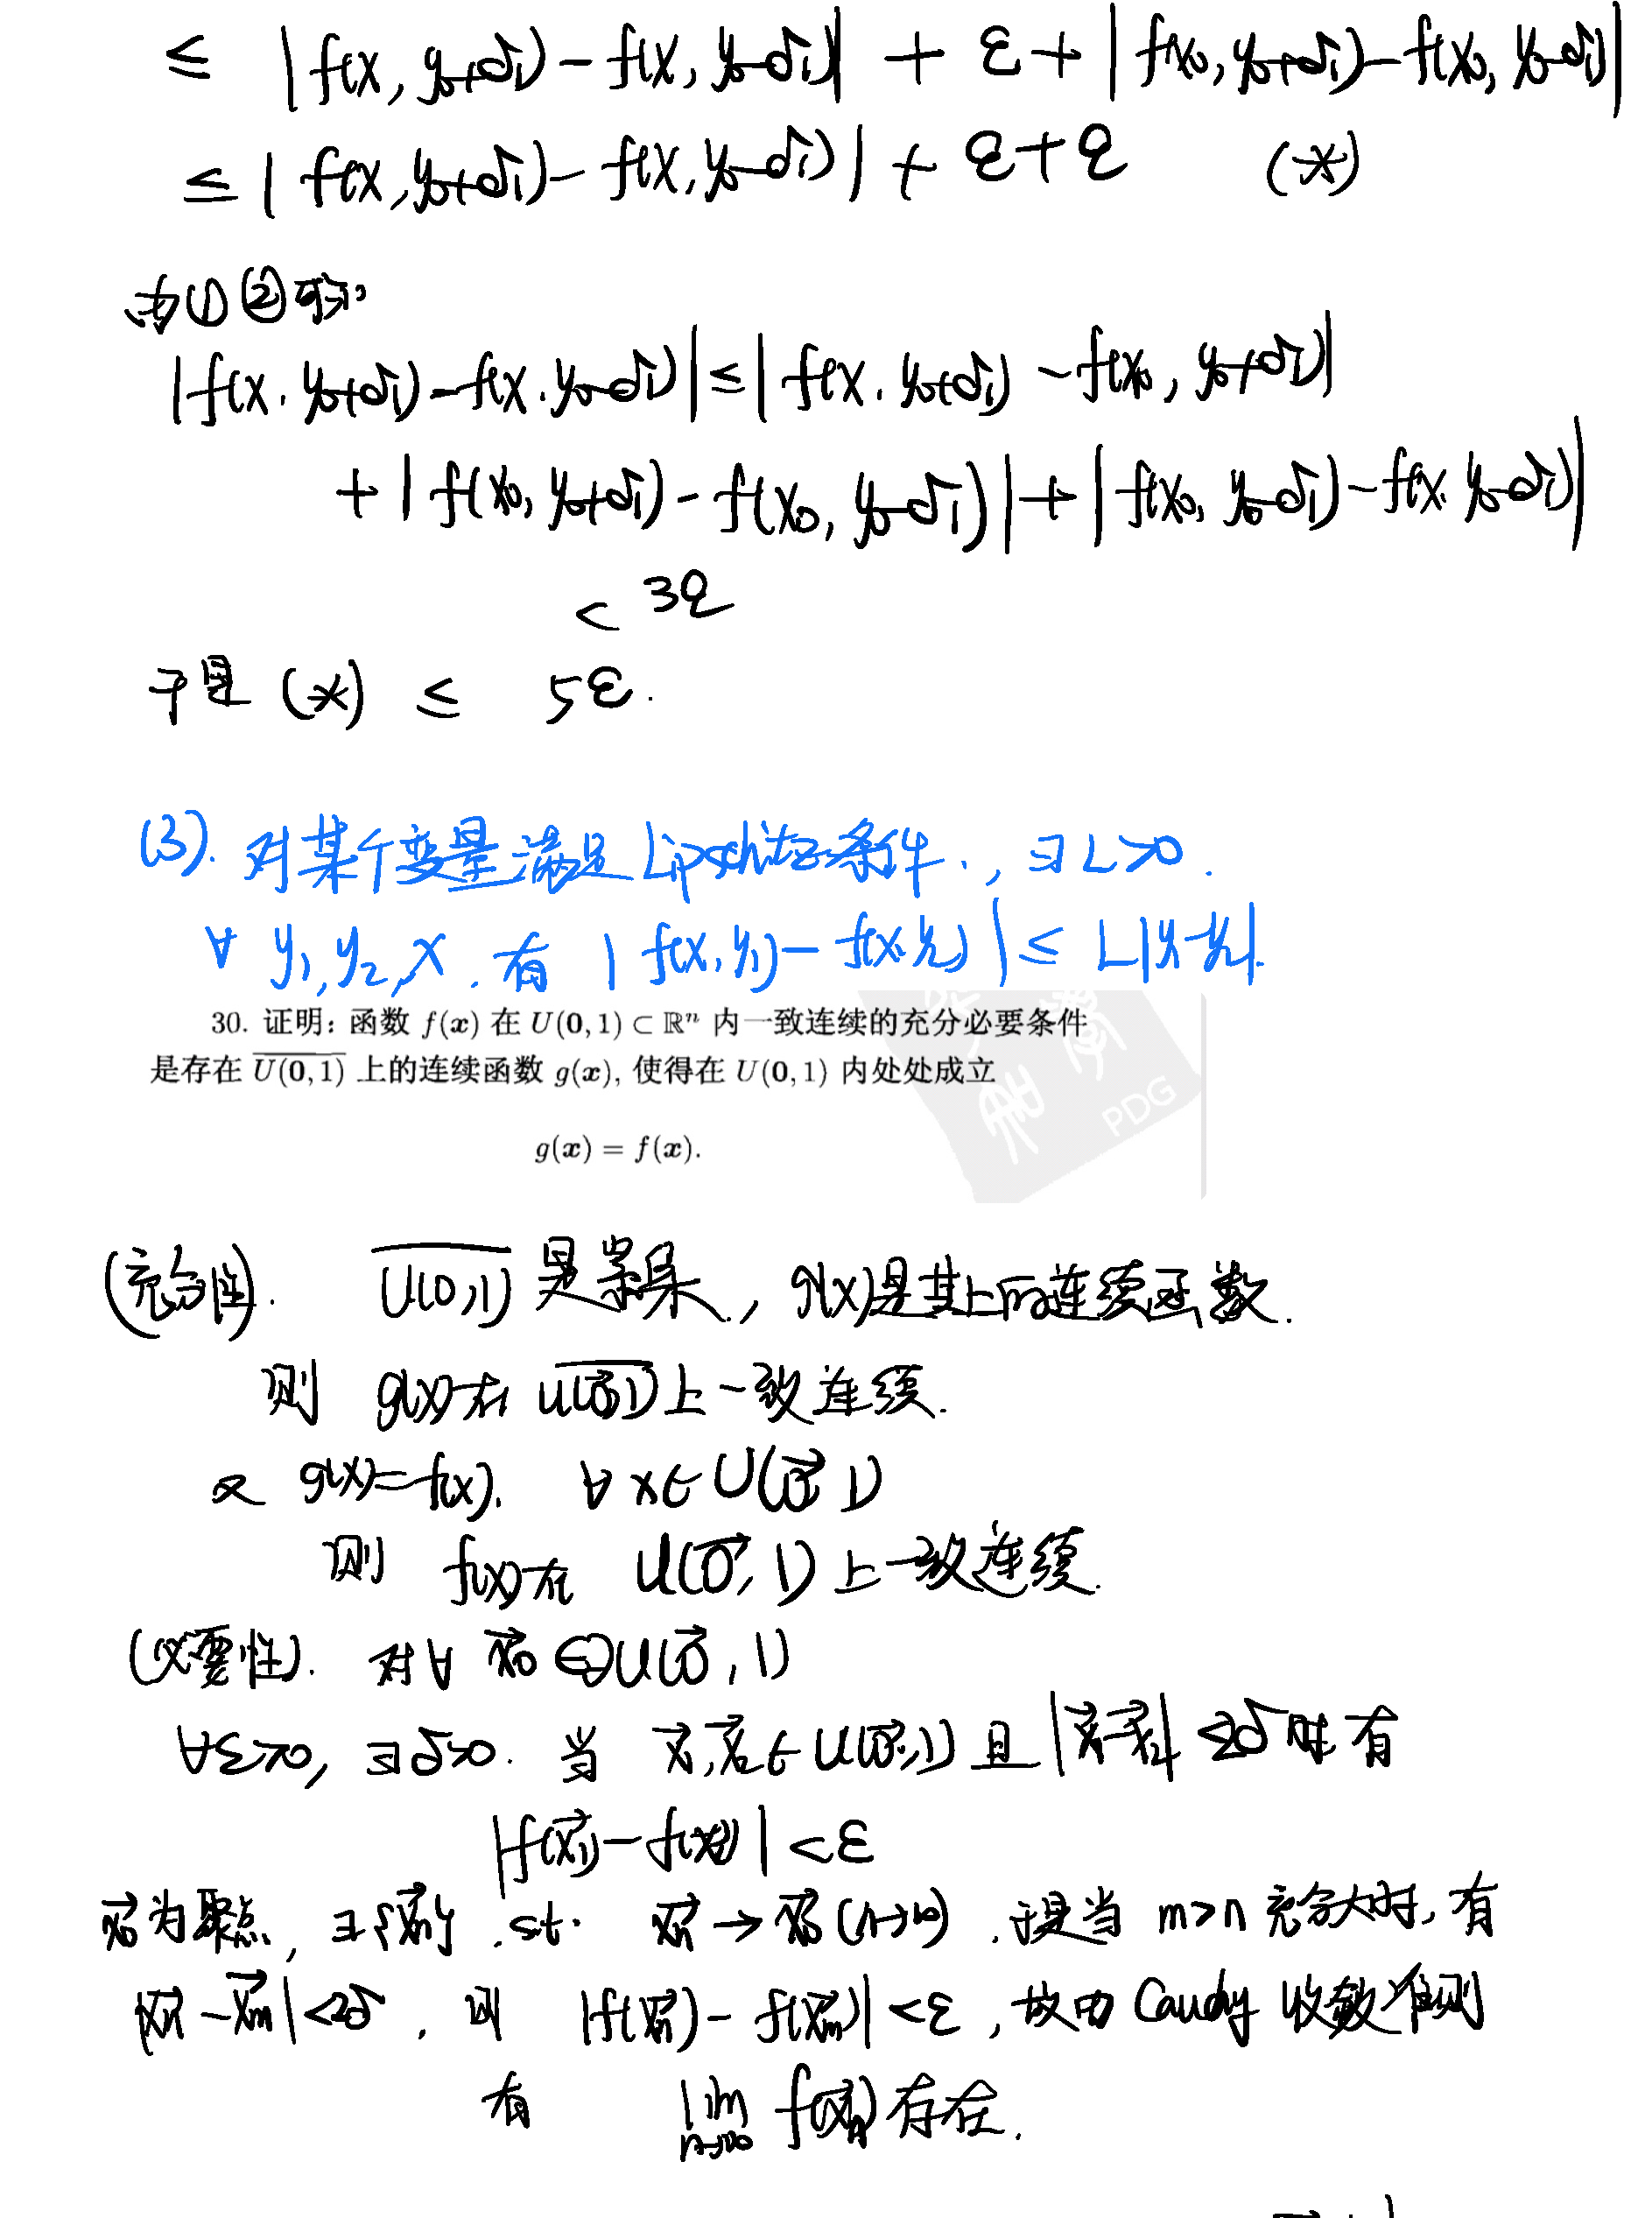 ≤ |f(x, y₀+δ₁) − f(x, y₀−δ₁)| + ε + |f(x₀, y₀+δ₁) − f(x₀, y₀−δ₁)|
≤ |f(x, y₀+δ₁) − f(x, y₀−δ₁)| + ε + ε (*)
由①②可知
|f(x, y₀+δ₁) − f(x, y₀−δ₁)| ≤ |f(x, y₀+δ₁) − f(x₀, y₀+δ₁)|
+ |f(x₀, y₀+δ₁) − f(x₀, y₀−δ₁)| + |f(x₀, y₀−δ₁) − f(x, y₀−δ₁)|
< 3ε
于是 (*) ≤ 5ε.
(3). 对某个变量满足Lipschitz条件., ∃L>0.
∀ y₁, y₂, x. 有 |f(x, y₁) − f(x, y₂)| ≤ L|y₁−y₂|.
30. 证明: 函数 f(x) 在 U(0,1) ⊂ ℝⁿ 内一致连续的充分必要条件
是存在 \overline{U(0,1)} 上的连续函数 g(x), 使得在 U(0,1) 内处处成立
g(x) = f(x).
PDG
(充分性). \overline{U(0,1)} 是紧集, g(x)是其上的连续函数.
则 g(x)在 \overline{U(\vec{0},1)} 上一致连续.
又 g(x)=f(x). ∀ x∈U(\vec{0},1)
则 f(x)在 U(\vec{0},1) 上一致连续.
(必要性). 对∀ \vec{x₀} ∈∂U(\vec{0},1)
∀ε>0, ∃δ>0. 当 \vec{x₁},\vec{x₂}∈U(\vec{0},1) 且 |\vec{x₁}−\vec{x₂}| <2δ 时有
|f(\vec{x₁}) − f(\vec{x₂})| < ε
\vec{x₀}为聚点, ∃{\vec{xₙ}}, s.t. \vec{xₙ} → \vec{x₀} (n→∞). 于是当 m>n 充分大时, 有
|\vec{xₙ} − \vec{xₘ}| <2δ, 则 |f(\vec{xₙ}) − f(\vec{xₘ})| <ε, 故由 Cauchy 收敛准则
有 \lim_{n→∞} f(\vec{xₙ}) 存在.